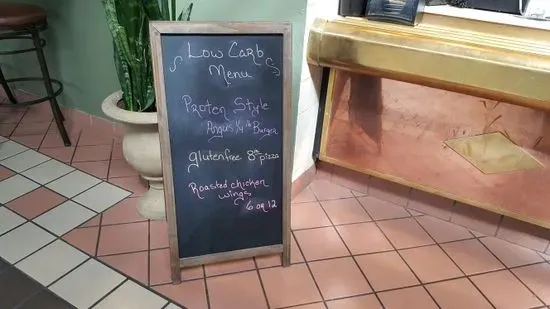 Low Carb
Menu
Proten Style
Angus 1/4 lb Burger
glutenfree 8" pizza
Roasted chicken
wings
6 or 12